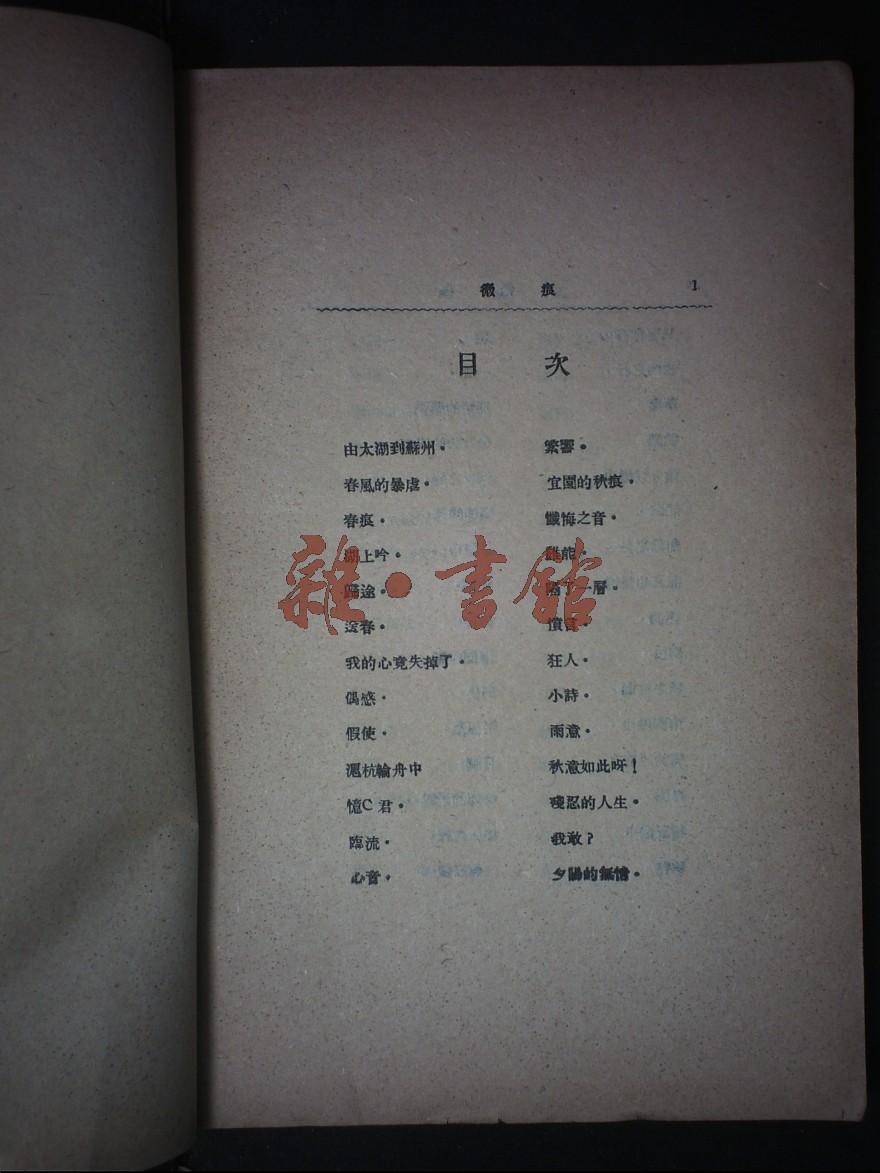 微痕 1
目次
由太湖到蘇州。
春風的暴虐。
春痕。
湖上吟。
歸途。
送春。
我的心竟失掉了。
偶感。
假使。
滬杭輪舟中
憶C君。
臨流。
心音。
繁響。
宜園的秋痕。
懺悔之音。
誰能。
隔了一層。
遺言。
狂人。
小詩。
雨意。
秋意如此呀!
殘忍的人生。
我敢?
夕陽的無憎。
雜·書館